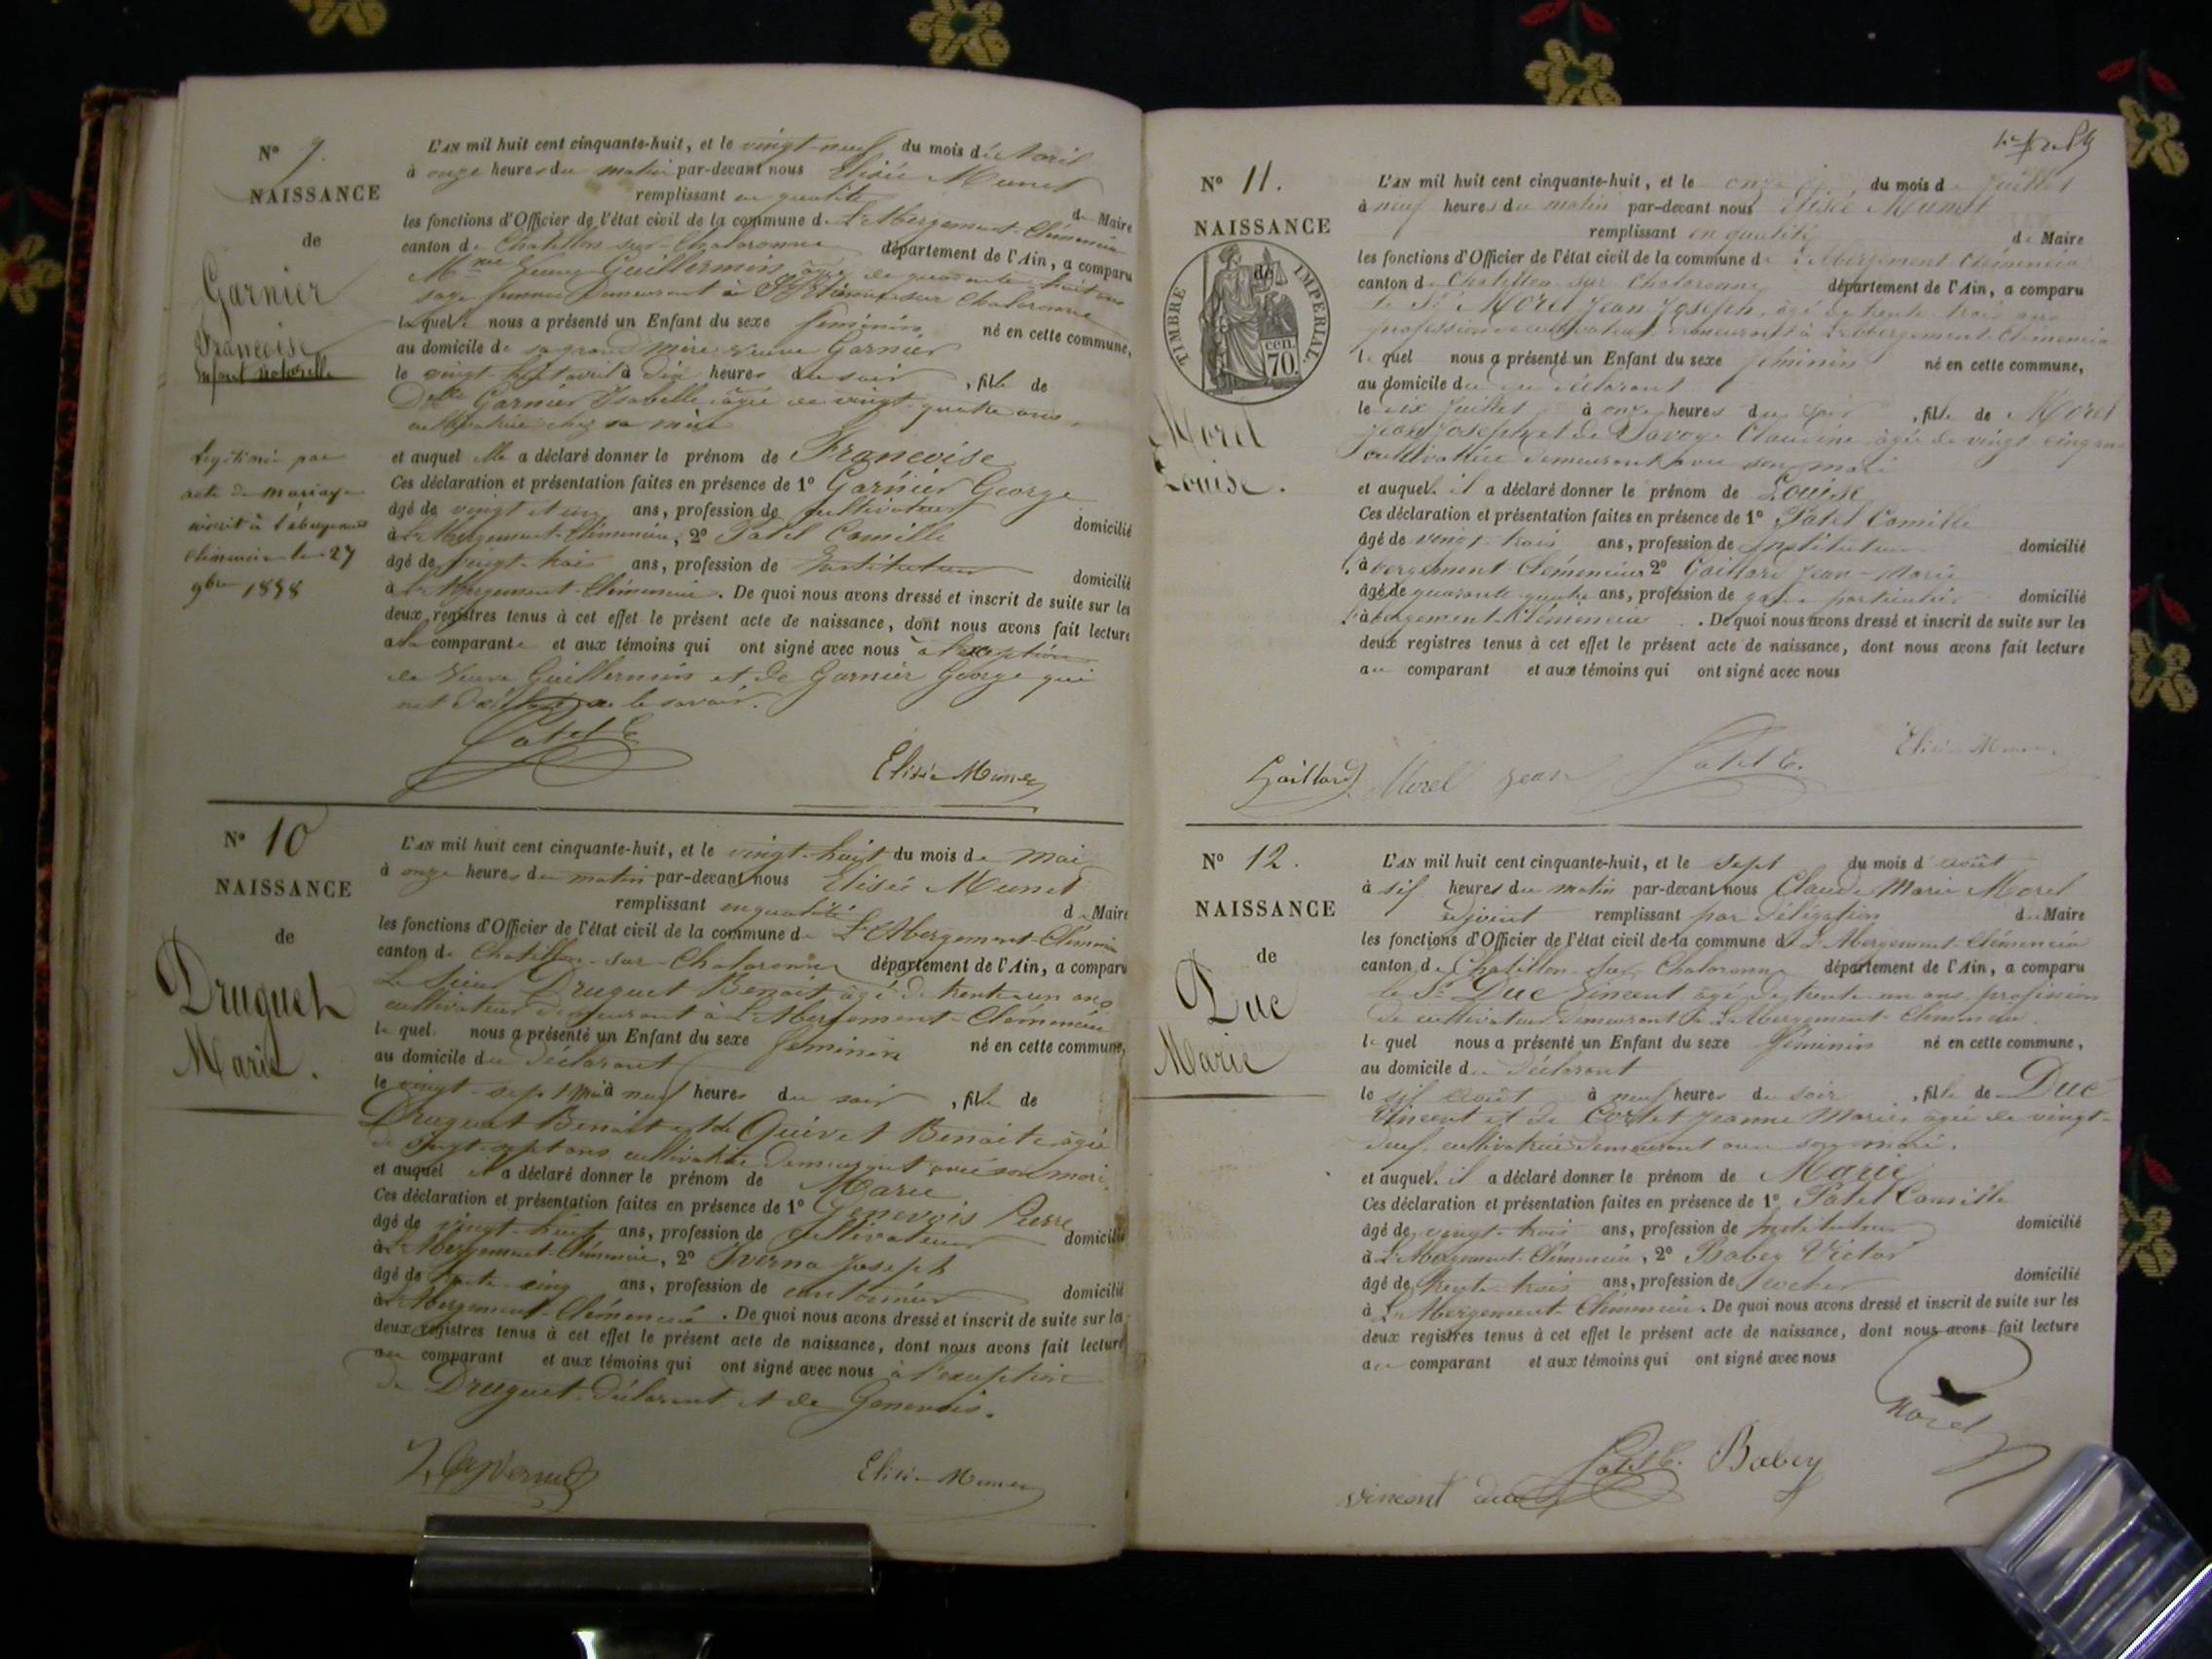 N° 9.
NAISSANCE
de
Garnier
Francoise
Enfant naturelle
Legitimée par
acte de mariage
inscrit à l'abergement
clémencia le 27
9bre 1858
L'AN mil huit cent cinquante-huit, et le vingt-neuf du mois d'Avril
à onze heures du matin par-devant nous Elisée Munet
remplissant en qualité de Maire
les fonctions d'Officier de l'état civil de la commune de L'Abergement-Clémencia
canton de Chatillon-sur-Chalaronne département de l'Ain, a comparu
Guillermin âgée de quarante-huit ans
sage femme demeurant à St Etienne sur Chalaronne
laquelle nous a présenté un Enfant du sexe féminin né en cette commune,
au domicile de sa grand mère veuve Garnier
le vingt-huit avril à dix heures du soir, fille de
Delle Garnier Isabelle âgée de vingt-quatre ans,
cultivatrice chez sa mère
et auquel elle a déclaré donner le prénom de Francoise
Ces déclaration et présentation faites en présence de 1° Garnier George
âgé de vingt et un ans, profession de cultivateur domicilié
à L'Abergement-Clémencia, 2° Patel Camille
âgé de vingt-trois ans, profession de Instituteur domicilié
à L'Abergement-Clémencia. De quoi nous avons dressé et inscrit de suite sur les
deux registres tenus à cet effet le présent acte de naissance, dont nous avons fait lecture
a la comparante et aux témoins qui ont signé avec nous à l'exception
de veuve Guillermin et de Garnier George qui
ont déclaré ne le savoir.
Patel C
Elisée Munet
N° 10
NAISSANCE
de
Druguet
Marie.
L'AN mil huit cent cinquante-huit, et le vingt-huit du mois de Mai
à onze heures du matin par-devant nous Elisée Munet
remplissant en qualité de Maire
les fonctions d'Officier de l'état civil de la commune de L'Abergement-Clémencia
canton de Chatillon-sur-Chalaronne département de l'Ain, a comparu
Le Sieur Druguet Benoit âgé de trente un ans
cultivateur demeurant à L'Abergement-Clémencia
lequel nous a présenté un Enfant du sexe féminin né en cette commune,
au domicile du déclarant
le vingt-sept mai à neuf heures du soir, fille de
Druguet Benoit et de Quivet Benoite âgée
de vingt-sept ans cultivatrice demeurant avec son mari,
et auquel il a déclaré donner le prénom de Marie
Ces déclaration et présentation faites en présence de 1° Genevois Pierre
âgé de vingt-huit ans, profession de cultivateur domicilié
à L'Abergement-Clémencia, 2° Joseph
âgé de trente cinq ans, profession de cantonnier domicilié
à L'Abergement-Clémencia. De quoi nous avons dressé et inscrit de suite sur les
deux registres tenus à cet effet le présent acte de naissance, dont nous avons fait lecture
au comparant et aux témoins qui ont signé avec nous à l'exception
de Druguet déclarant et de Genevois.
Elisée Munet
N° 11.
NAISSANCE
de
TIMBRE IMPERIAL.
70 cen.
Morel
Louise.
L'AN mil huit cent cinquante-huit, et le onze du mois de Juillet
à neuf heures du matin par-devant nous Elisée Munet
remplissant en qualité de Maire
les fonctions d'Officier de l'état civil de la commune de L'Abergement Clémencia
canton de Chatillon sur Chalaronne département de l'Ain, a comparu
le Sr Morel Jean Joseph, âgé de trente-trois ans
profession de cultivateur, demeurant à L'Abergement Clémencia
lequel nous a présenté un Enfant du sexe féminin né en cette commune,
au domicile du déclarant
le dix Juillet à onze heures du soir, fille de Morel
Jean Joseph et de Savoye Claudine âgée de vingt cinq ans
cultivatrice demeurant avec son mari
et auquel il a déclaré donner le prénom de Louise
Ces déclaration et présentation faites en présence de 1° Patel Camille
âgé de vingt-trois ans, profession de Instituteur domicilié
à L'abergement Clémencia 2° Gaillard Jean-Marie
âgé de quarante quatre ans, profession de garde particulier domicilié
à L'abergement Clémencia. De quoi nous avons dressé et inscrit de suite sur les
deux registres tenus à cet effet le présent acte de naissance, dont nous avons fait lecture
au comparant et aux témoins qui ont signé avec nous
Gaillard Morel jean Patel C. Elisée Munet
N° 12.
NAISSANCE
de
Duc
Marie
L'AN mil huit cent cinquante-huit, et le sept du mois d'août
à six heures du matin par-devant nous Claude Marie Morel
adjoint remplissant par délégation du Maire
les fonctions d'Officier de l'état civil de la commune de L'Abergement-Clémencia
canton de Chatillon-sur-Chalaronne département de l'Ain, a comparu
le Sr Duc Vincent âgé de trente-un ans profession
de cultivateur demeurant à L'Abergement-Clémencia.
lequel nous a présenté un Enfant du sexe féminin né en cette commune,
au domicile du déclarant
le six Août à neuf heures du soir, fille de Duc
Vincent et de Jeanne Marie, âgée de vingt-
neuf, cultivatrice demeurant avec son mari.
et auquel il a déclaré donner le prénom de Marie
Ces déclaration et présentation faites en présence de 1° Patel Camille
âgé de vingt-trois ans, profession de Instituteur domicilié
à L'Abergement-Clémencia, 2° Babey Victor
âgé de trente-trois ans, profession de domicilié
à L'Abergement-Clémencia. De quoi nous avons dressé et inscrit de suite sur les
deux registres tenus à cet effet le présent acte de naissance, dont nous avons fait lecture
au comparant et aux témoins qui ont signé avec nous
Morel
vincent duc Patel C. Babey